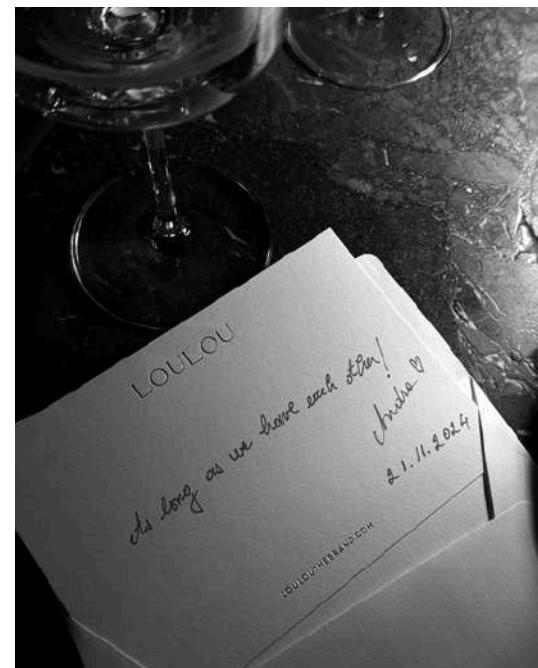 LOULOU
As long as we have each other!
Andra ♡
21.11.2024
LOULOUTHEBRAND.COM